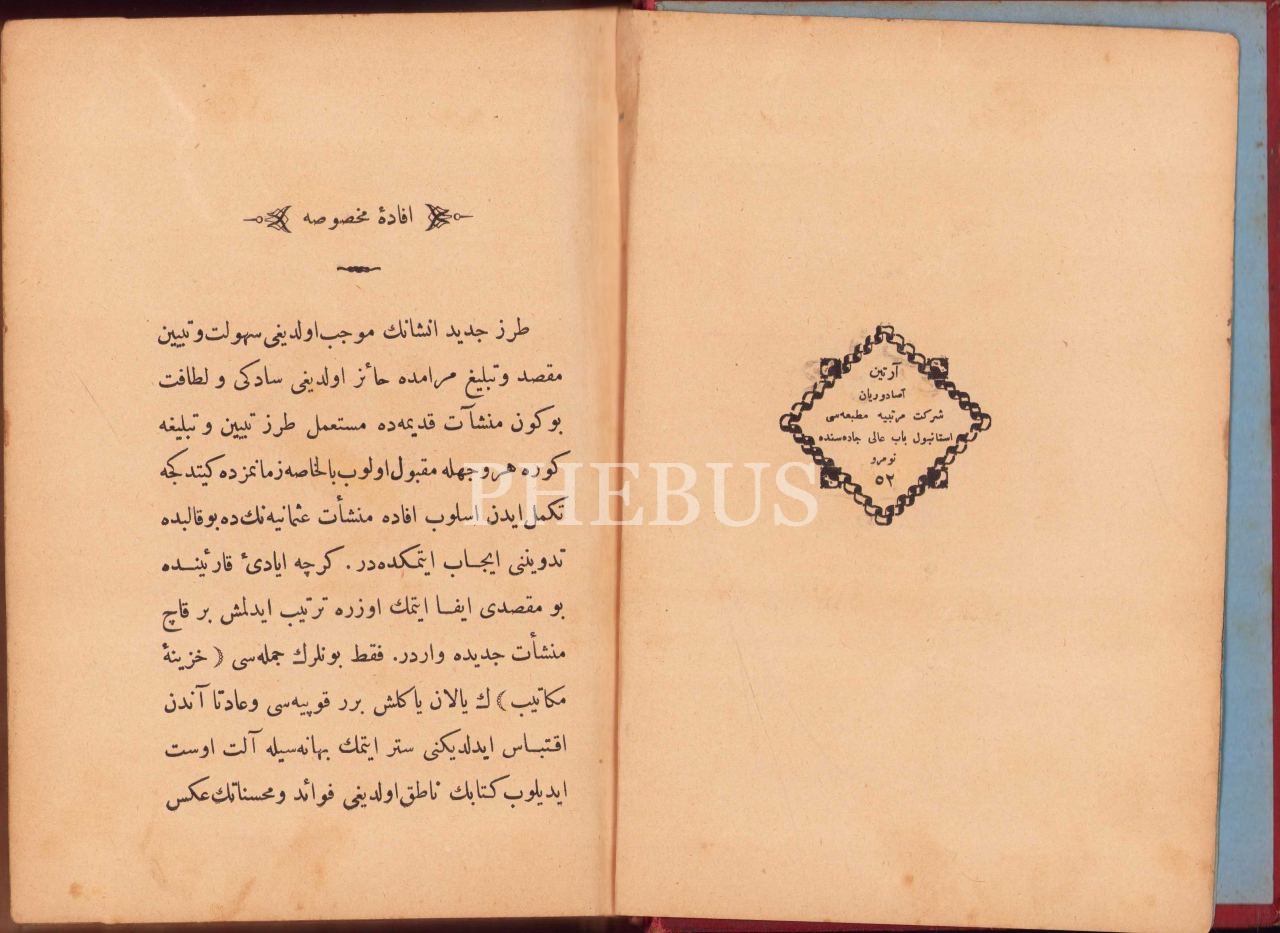 آرتین
آصادوریان
شرکت مرتبیه مطبعه‌سی
استانبول باب عالی جاده‌سنده
نومرو
٥٢
افادهٔ مخصوصه
طرز جدید انشانك موجب اولدیغی سهولت و تبیین
مقصد و تبلیغ مرامده حائز اولدیغی سادکی و لطافت
بوکون منشآت قدیمه‌ده مستعمل طرز تبیین و تبلیغه
کوره هر وجهله مقبول اولوب بالخاصه زمانمزده کیتدکجه
تکمل ایدن اسلوب افاده منشأت عثمانیه‌نك ده بو قالبده
تدویننی ایجاب ایتمکده‌در . کرچه ایادیٔ قارئینده
بو مقصدی ایفا ایتمك اوزره ترتیب ایدلمش بر قاچ
منشأت جدیده واردر. فقط بونلرك جمله‌سی ( خزینهٔ
مکاتیب ) ك یالان یاکلش برر قوپیه‌سی و عادتا آندن
اقتباس ایدلدیکنی ستر ایتمك بهانه‌سیله آلت اوست
ایدیلوب کتابك ناطق اولدیغی فوائد و محسناتك عکس
PHEBUS